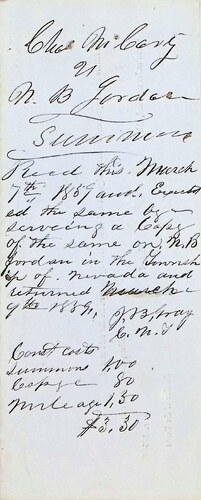 Chas McCarty
vs
N. B Jordan
Summons
Recd this March
7th 1859 and Execut
ed the same by
serveing a Copy
of the same on N. B
Jordan in the Townsh
ip of Nevada and
returned March
9th 1859,
J. B. Gray
C. N. T
Const costs
Summons 1,00
Copy 80
mileage 1,50
$3.30